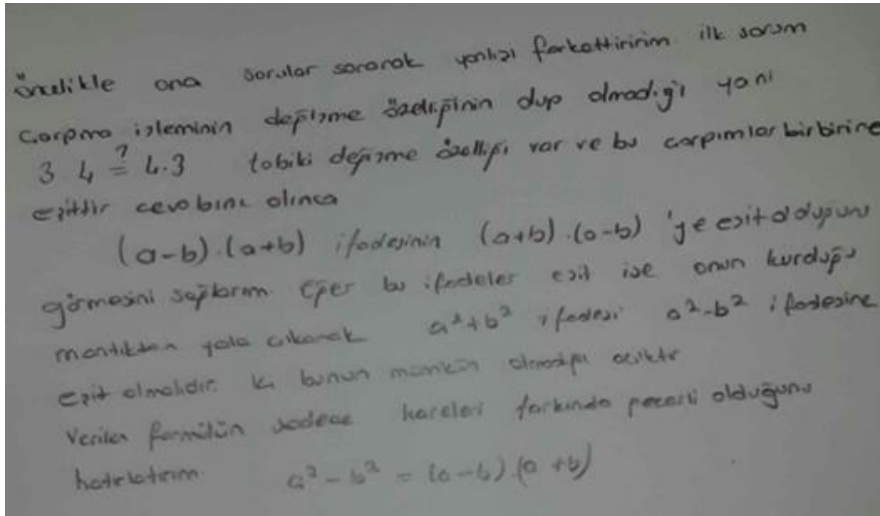 öncelikle ona sorular sorarak yanlışı farkettiririm. ilk sorum
Çarpma işleminin değişme özelliğinin olup olmadığı yani
3 4 ?= 4.3 tabiki değişme özelliği var ve bu çarpımlar birbirine
eşittir cevabını alınca
(a-b).(a+b) ifadesinin (a+b).(a-b) 'ye eşit olduğunu
görmesini sağlarım. Eğer bu ifadeler eşit ise onun kurduğu
mantıktan yola çıkarak a²+b² ifadesi a²-b² ifadesine
eşit olmalıdır. ki bunun mümkün olmadığı açıktır
Verilen formülün sadece kareleri farkında geçerli olduğunu
hatırlatırım. a²-b² = (a-b).(a+b)